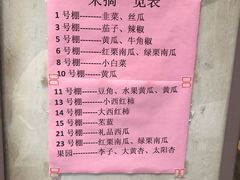 采摘一览表
1 号棚--------韭菜、丝瓜
3 号棚--------茄子、辣椒
5 号棚--------黄瓜、牛角椒
6 号棚--------红栗南瓜、绿栗南瓜
8 号棚--------小白菜
10 号棚-------黄瓜
11 号棚------豆角、水果黄瓜、黄瓜
13 号棚------小西红柿
14 号棚------大西红柿
15 号棚------茗蓝
21 号棚------礼品西瓜
23 号棚------红栗南瓜、绿栗南瓜
果园---------李子、大黄杏、太阳杏